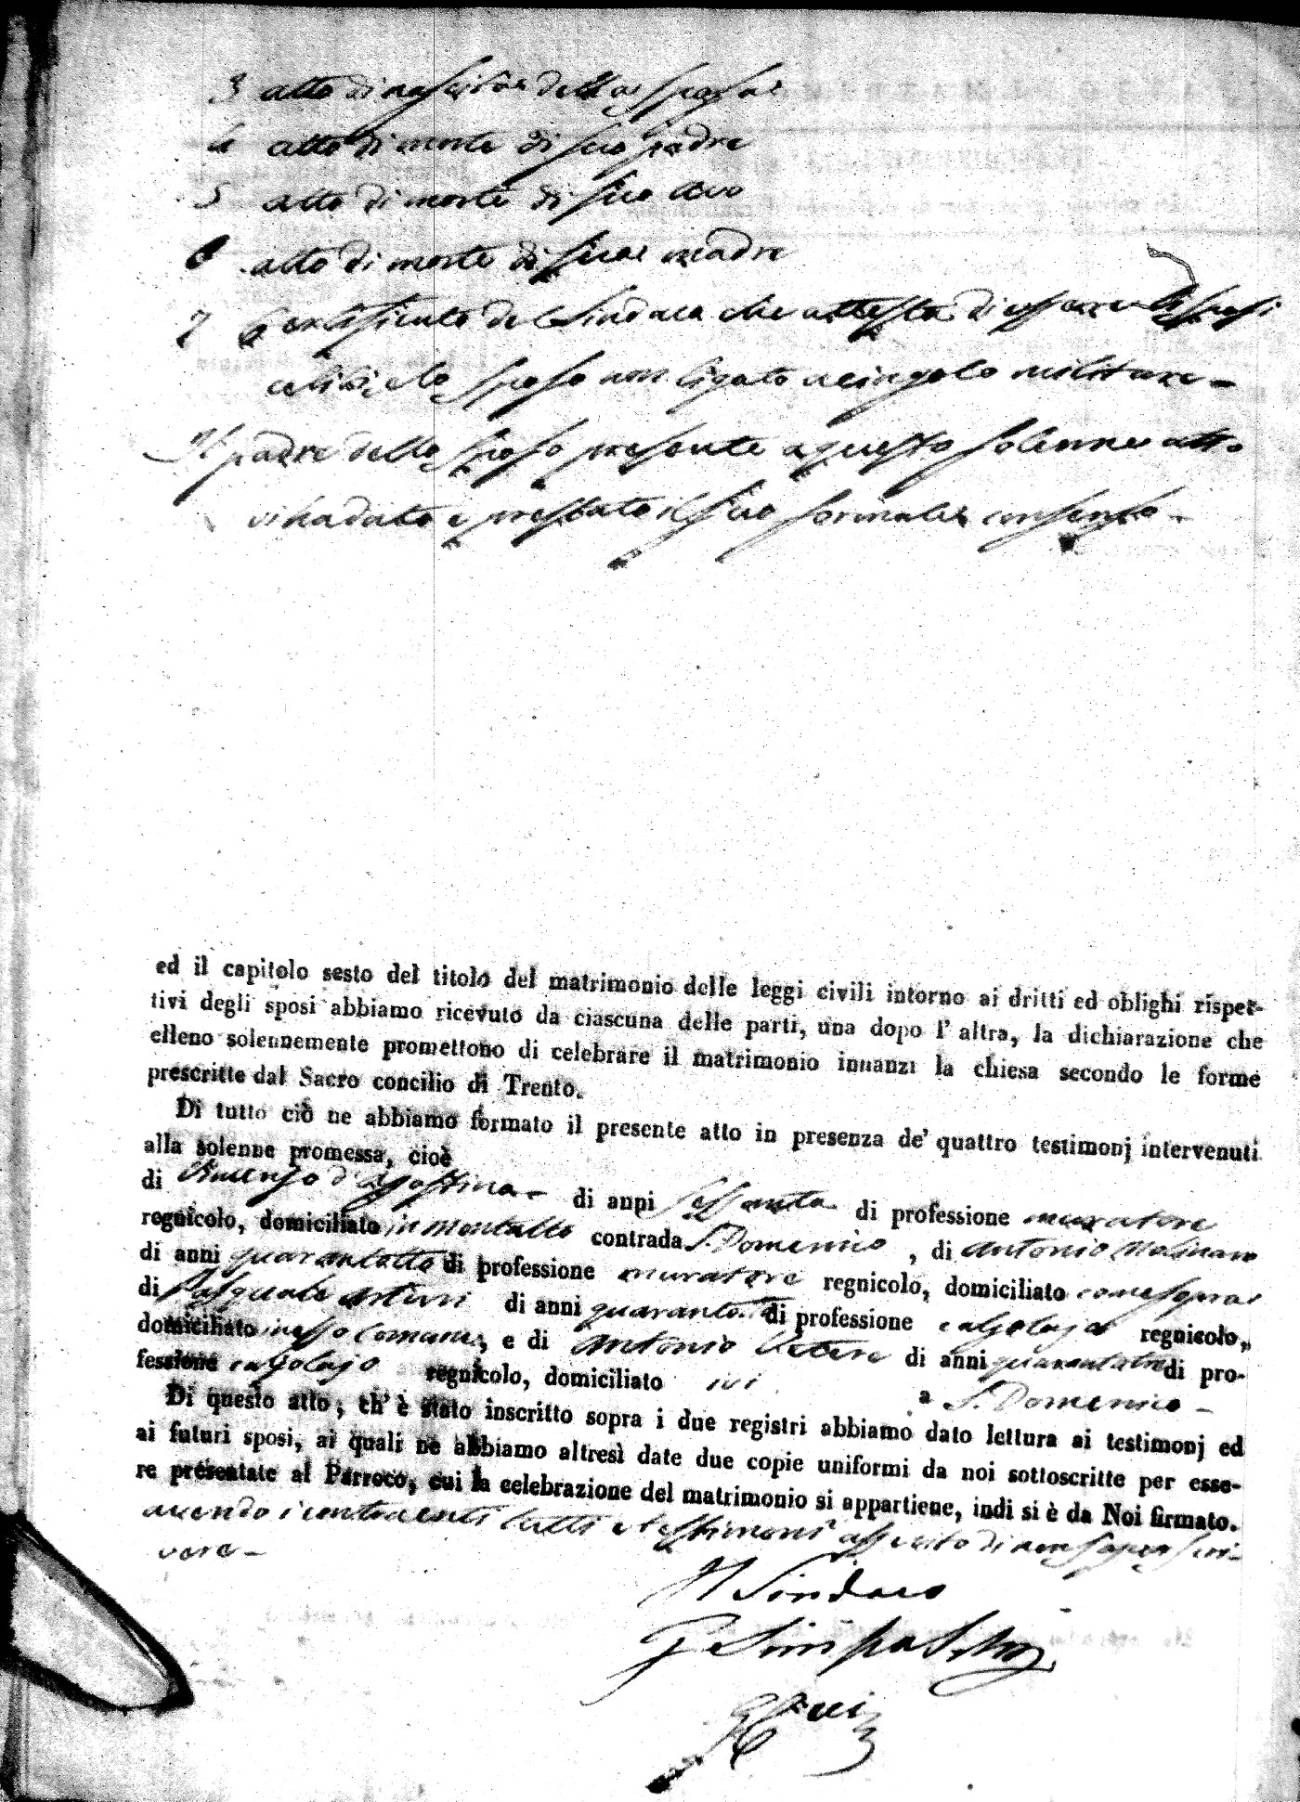 3 atto di nascita della sposa
4 atto di morte di suo padre
5 atto di morte di suo avo
6 atto di morte di sua madre
7 Certificato del Sindaco che attesta di essere li sposi
celibi e lo sposo non ligato a cingolo militare -
Il padre dello sposo presente a questo solenne atto
vi ha dato e prestato il suo formale consenso -
ed il capitolo sesto del titolo del matrimonio delle leggi civili intorno ai dritti ed oblighi rispet-
tivi degli sposi abbiamo ricevuto da ciascuna delle parti, una dopo l' altra, la dichiarazione che
elleno solennemente promettono di celebrare il matrimonio innanzi la chiesa secondo le forme
prescritte dal Sacro concilio di Trento.
Di tutto ciò ne abbiamo formato il presente atto in presenza de' quattro testimonj intervenuti
alla solenne promessa, cioè
di Vincenzo d'Agostino - di anni sessanta di professione muratore
regnicolo, domiciliato in Montalto contrada S. Domenico , di Antonio Molinaro
di anni quarantotto di professione muratore regnicolo, domiciliato come sopra
di Pasquale Arturi di anni quaranta di professione calzolajo regnicolo,
domiciliato in esso Comune, e di Antonio Vetere di anni di pro-
fessione calzolajo regnicolo, domiciliato ivi a S. Domenico -
Di questo atto, ch' è stato inscritto sopra i due registri abbiamo dato lettura ai testimonj ed
ai futuri sposi, ai quali ne abbiamo altresì date due copie uniformi da noi sottoscritte per esse-
re presentate al Parroco, cui la celebrazione del matrimonio si appartiene, indi si è da Noi firmato.
avendo i contraenti tutti e testimoni asserito di non saper scri-
vere -
Il Sindaco